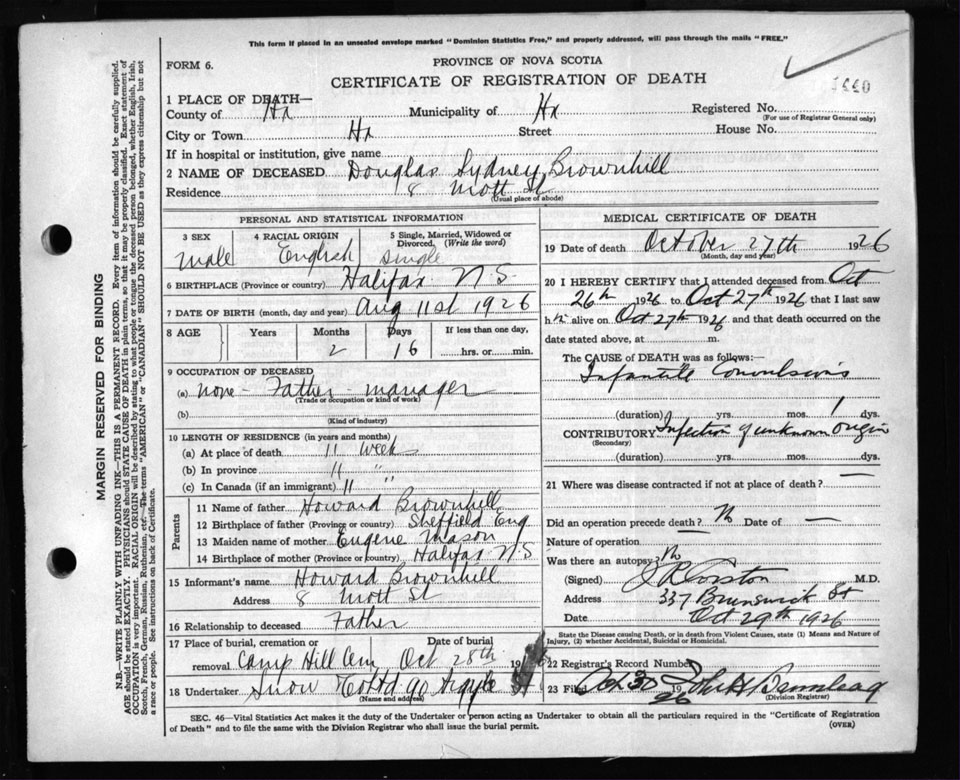 This form if placed in an unsealed envelope marked "Dominion Statistics Free," and properly addressed, will pass through the mails "FREE."
FORM 6.
PROVINCE OF NOVA SCOTIA
CERTIFICATE OF REGISTRATION OF DEATH
1 PLACE OF DEATH—
County of Hx Municipality of Hx Registered No.
(For use of Registrar General only)
City or Town Hx Street House No.
If in hospital or institution, give name
2 NAME OF DECEASED Douglas Sydney Brownhill
Residence 8 Mott St
(Usual place of abode)
PERSONAL AND STATISTICAL INFORMATION
3 SEX 4 RACIAL ORIGIN 5 Single, Married, Widowed or Divorced. (Write the word)
Male English Single
6 BIRTHPLACE (Province or country) Halifax N.S
7 DATE OF BIRTH (month, day and year) Aug 11st 1926
8 AGE Years Months Days If less than one day,
2 16 hrs. or min.
9 OCCUPATION OF DECEASED
(a) none - Father - manager
(Trade or occupation or kind of work)
(b)
(Kind of industry)
10 LENGTH OF RESIDENCE (in years and months)
(a) At place of death 11 weeks
(b) In province 11 "
(c) In Canada (if an immigrant) 11 "
Parents
11 Name of father Howard Brownhill
12 Birthplace of father (Province or country) Sheffield Eng
13 Maiden name of mother Eugene Mason
14 Birthplace of mother (Province or country) Halifax N S
15 Informant's name Howard Brownhill
Address 8 Mott St
16 Relationship to deceased Father
17 Place of burial, cremation or removal Date of burial
Camp Hill Cem Oct 28th 19
18 Undertaker Snow & Co Ltd 90 Argyle St
(Name and address)
MEDICAL CERTIFICATE OF DEATH
19 Date of death October 27th 1926
(Month, day and year)
20 I HEREBY CERTIFY that I attended deceased from Oct
26th 1926 to Oct 27th 1926 that I last saw
him alive on Oct 27th 1926 and that death occurred on the
date stated above, at m.
The CAUSE OF DEATH was as follows:—
Infantile Convulsions
(duration) yrs. mos. 1 dys.
CONTRIBUTORY Infection of unknown origin
(Secondary)
(duration) yrs. mos. dys.
21 Where was disease contracted if not at place of death? —
Did an operation precede death? No Date of —
Nature of operation
Was there an autopsy? No
(Signed) M.D.
Address 337 Brunswick St
Date Oct 29th 1926
State the Disease causing Death, or in death from Violent Causes, state (1) Means and Nature of
Injury, (2) whether Accidental, Suicidal or Homicidal.
22 Registrar's Record Number
23 Filed Oct 30 1926 John H
(Division Registrar)
SEC. 46—Vital Statistics Act makes it the duty of the Undertaker or person acting as Undertaker to obtain all the particulars required in the "Certificate of Registration
of Death" and to file the same with the Division Registrar who shall issue the burial permit.
MARGIN RESERVED FOR BINDING
N.B.—WRITE PLAINLY WITH UNFADING INK—THIS IS A PERMANENT RECORD. Every item of information should be carefully supplied.
AGE should be stated EXACTLY. PHYSICIANS should STATE CAUSE OF DEATH in plain terms, so that it may be properly classified. Exact statement of
OCCUPATION is very important. RACIAL ORIGIN will be described by stating to what people or tongue the deceased person belonged, whether English, Irish,
Scotch, French, German, Russian, Ruthenian, etc.—The terms "AMERICAN" or "CANADIAN" SHOULD NOT BE USED as they express citizenship but not
a race or people. See instructions on back of Certificate.